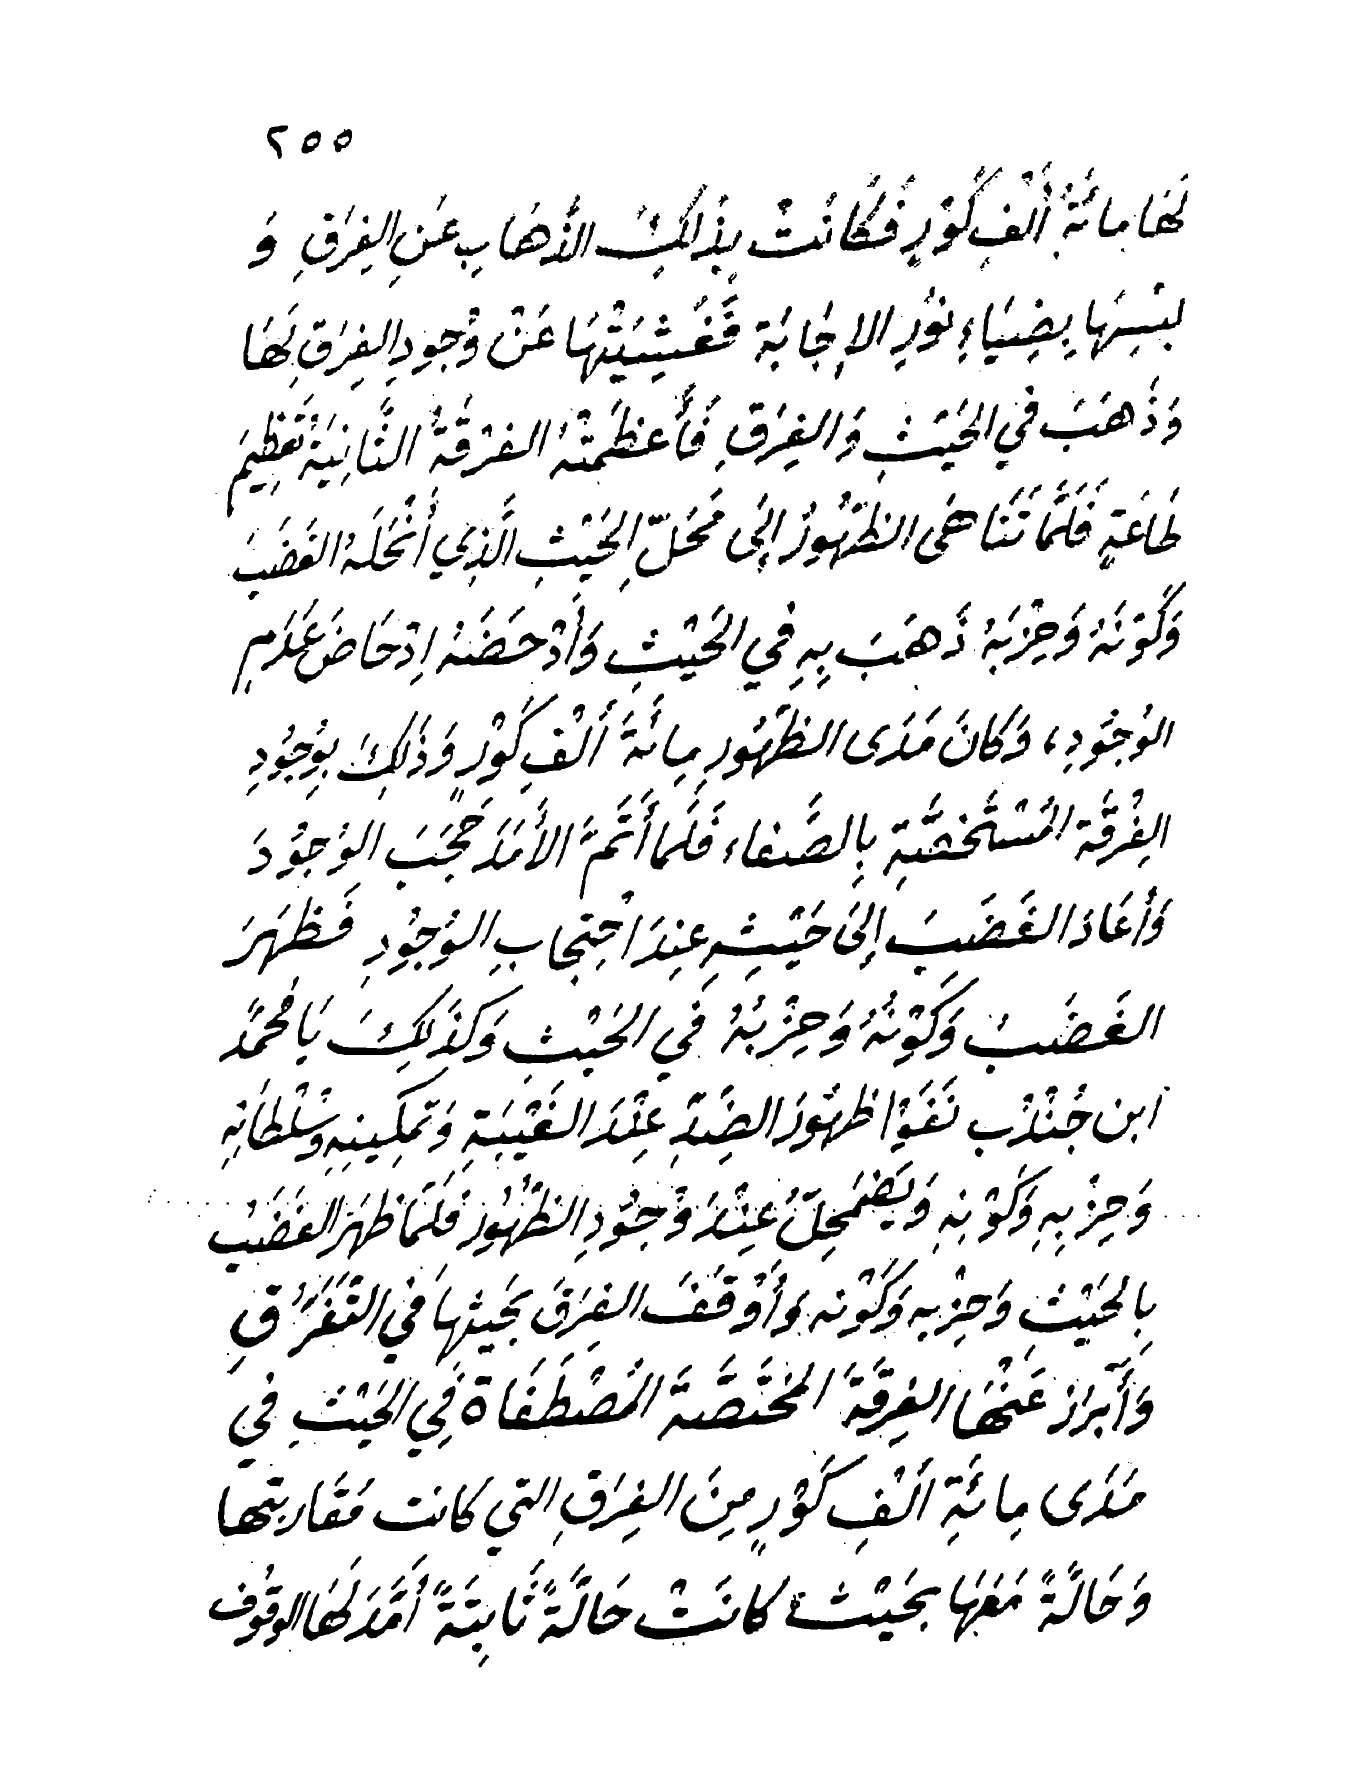 ٢٥٥
لَهَا مِائَةُ أَلْفِ كَوْرٍ فَكَانَتْ بِذَلِكَ الذَّهَابِ عَنِ الفِرَقِ وَ
بِضِيَاءِ نُورِ الإِجَابَةِ فَغَشِيَتْهَا عَنْ وُجُودِ الفِرَقِ لَهَا
وَذَهَبَ فِي الحَيْثِ وَالفِرَقِ فَأَعْظَمَتْهُ الفِرْقَةُ الثَّانِيَةُ تَعْظِيمَ
طَاعَةٍ فَلَمَّا تَنَاهَى الظُّهُورُ إِلَى مَحَلِّ الحَيْثِ الَّذِي أَنْحَلَهُ الغَضَبَ
وَكَوْنَهُ وَحِزْبَهُ ذَهَبَ بِهِ فِي الحَيْثِ وَأَدْحَضَهُ إِدْحَاضَ عَدَمِ
الوُجُودِ، وَكَانَ مَدَى الظُّهُورِ مِائَةَ أَلْفِ كَوْرٍ وَذَلِكَ بِوُجُودِ
الفِرْقَةِ المُسْتَخَصَّةِ بِالصَّفَاء فَلَمَّا أَتَمَّ الأَمَدَ حَجَبَ الوُجُودَ
وَأَعَادَ الغَضَبَ إِلَى حَيْثِهِ عِنْدَ احْتِجَابِ الوُجُودِ فَظَهَرَ
الغَضَبُ وَكَوْنُهُ وَحِزْبُهُ فِي الحَيْثِ وَكَذَلِكَ يَا مُحَمَّدُ
ابن جُنْدُبِ نَفَوْا ظُهُورَ الضِّدِّ عِنْدَ الغَيْبَةِ وَتَمْكِينِهِ وَسُلْطَانِهِ
وَحِزْبِهِ وَكَوْنِهِ وَيَضْمَحِلُّ عِنْدَ وُجُودِ الظُّهُورِ فَلَمَّا ظَهَرَ الغَضَبُ
بِالحَيْثِ وَحِزْبِهِ وَكَوْنِهِ وَأَوْقَفَ الفِرَقَ بِحَيْثِهَا فِي التَّفَرُّقِ
وَأَبْرَزَ عَنْهَا الفِرْقَةَ المُخْتَصَّةَ المُصْطَفَاةَ فِي الحَيْثِ فِي
مَدَى مِائَةِ أَلْفِ كَوْرٍ مِنَ الفِرَقِ التي كانت مُقَاربتها
وَحَالَّةً مَعَهَا بِحَيْثُ كَانَتْ حَالَّةً ثَابِتَةً أَمَّدَ لَهَا الوقُوفَ